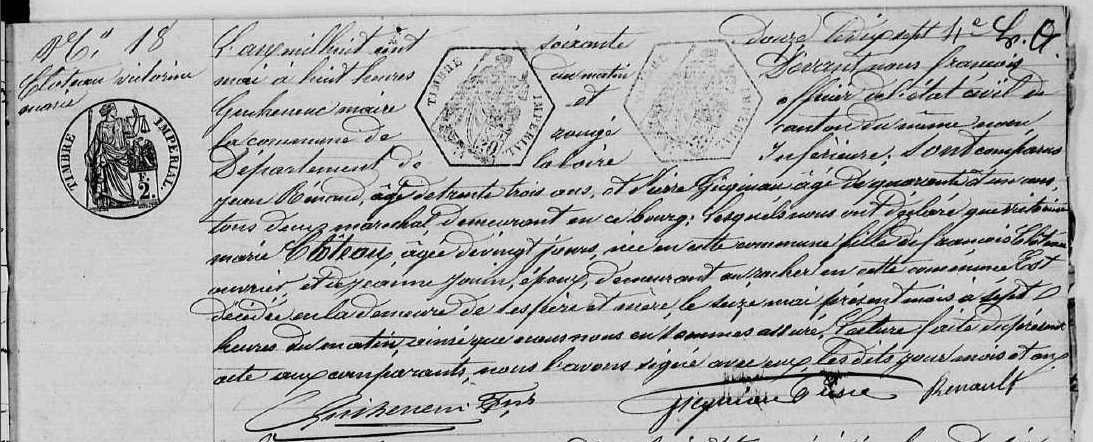 N° 18
Clôteau victorine
marie
L'an mil huit cent soixante douze le dix sept
mai à huit heures du matin Devant nous françois
Guiheneuc maire et officier de l'état civil de
la commune de rougé canton du même nom
Département de la loire Inférieure; Sont comparus
jean Rénaud, âgé de trente trois ans, et Pierre Juginiau âgé de quarante et un an,
tous deux marechal demeurant en ce bourg; Lesquels nous ont déclaré que victorine
marie Clôteau, âgée de vingt jours, née en cette commune fille de françois Clôteau
ouvrier, et de jeanne jouin, époux, demeurant au rocher en cette commune Est
décédée en la demeure de ses père et mère, le seize mai présent mois à sept
heures du matin, ainsi que nous nous en sommes assuré, Lecture faite du présent
acte aux comparants, nous l'avons signé avec eux, les dits jour mois et an
Guiheneuc
pierre Renault
TIMBRE IMPERIAL
F.
2.
TIMBRE IMPERIAL